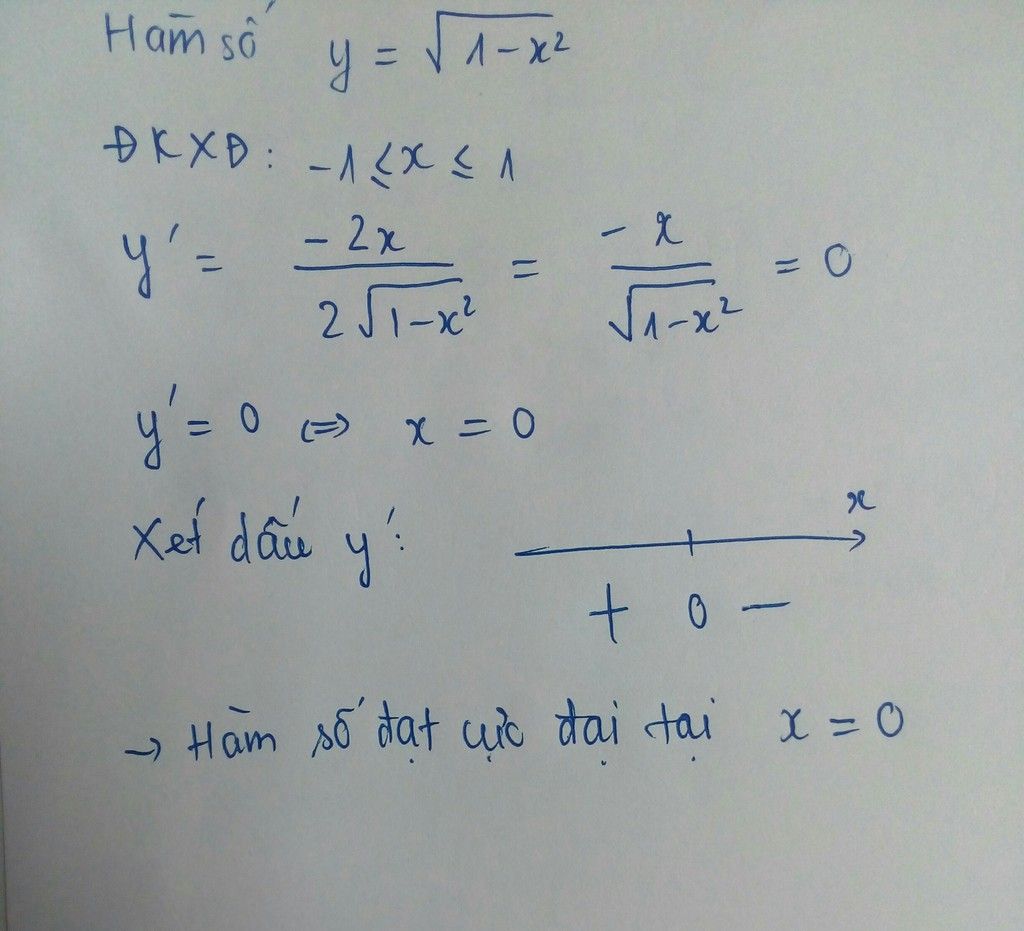 Hàm số y = √(1-x²)
ĐKXĐ: -1 ≤ x ≤ 1
y' = -2x / (2√(1-x²)) = -x / √(1-x²) = 0
y' = 0 ⇔ x = 0
Xét dấu y': x
+ 0 -
→ Hàm số đạt cực đại tại x = 0